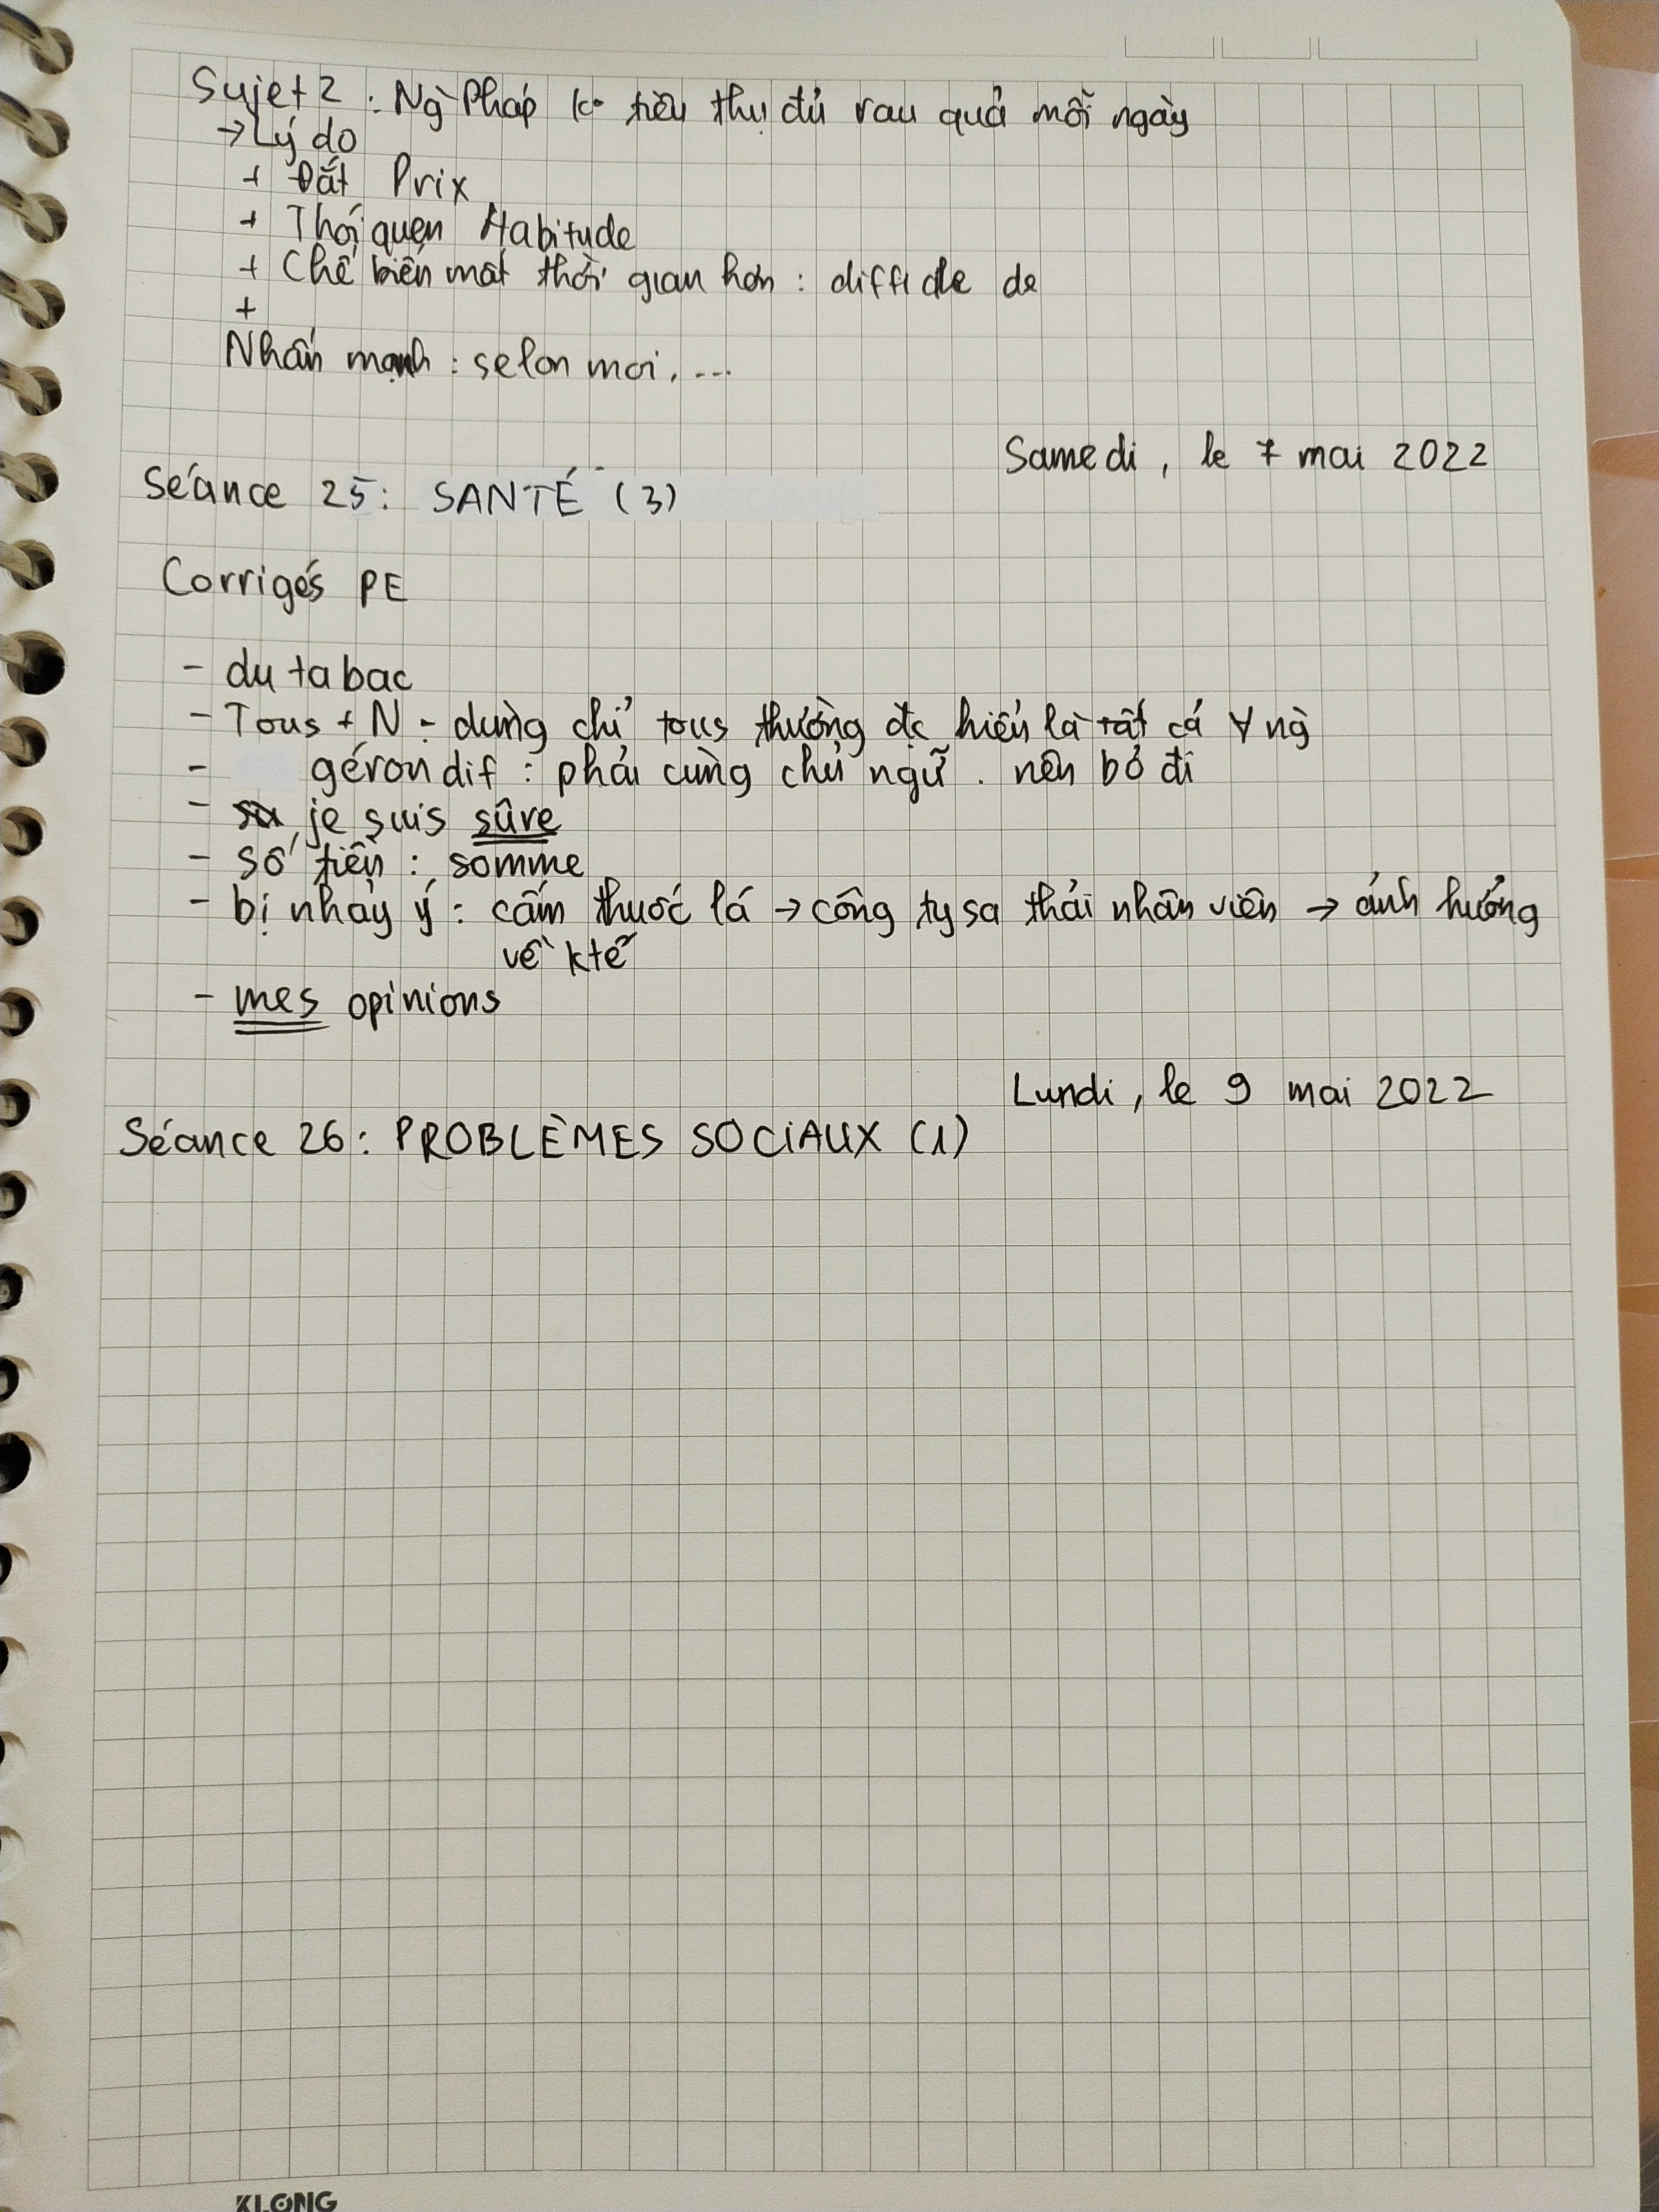 Sujet 2 : Ng` Pháp k° tiêu thụ đủ rau quả mỗi ngày
→ Lý do
+ Đắt Prix
+ Thói quen Habitude
+ Chế biến mất thời gian hơn : difficile de
+
Nhấn mạnh : selon moi, ...
Samedi, le 7 mai 2022
Séance 25 : SANTÉ (3)
Corrigés PE
- du tabac
- Tous + N - dùng chỉ tous thường đc hiểu là tất cả ∀ ng`
- gérondif : phải cùng chủ ngữ . nên bỏ đi
- je suis sûre
- số tiền : somme
- bị nhảy ý : cấm thuốc lá → công ty sa thải nhân viên → ảnh hưởng
về ktế
- mes opinions
Lundi, le 9 mai 2022
Séance 26 : PROBLÈMES SOCIAUX (1)
KLONG